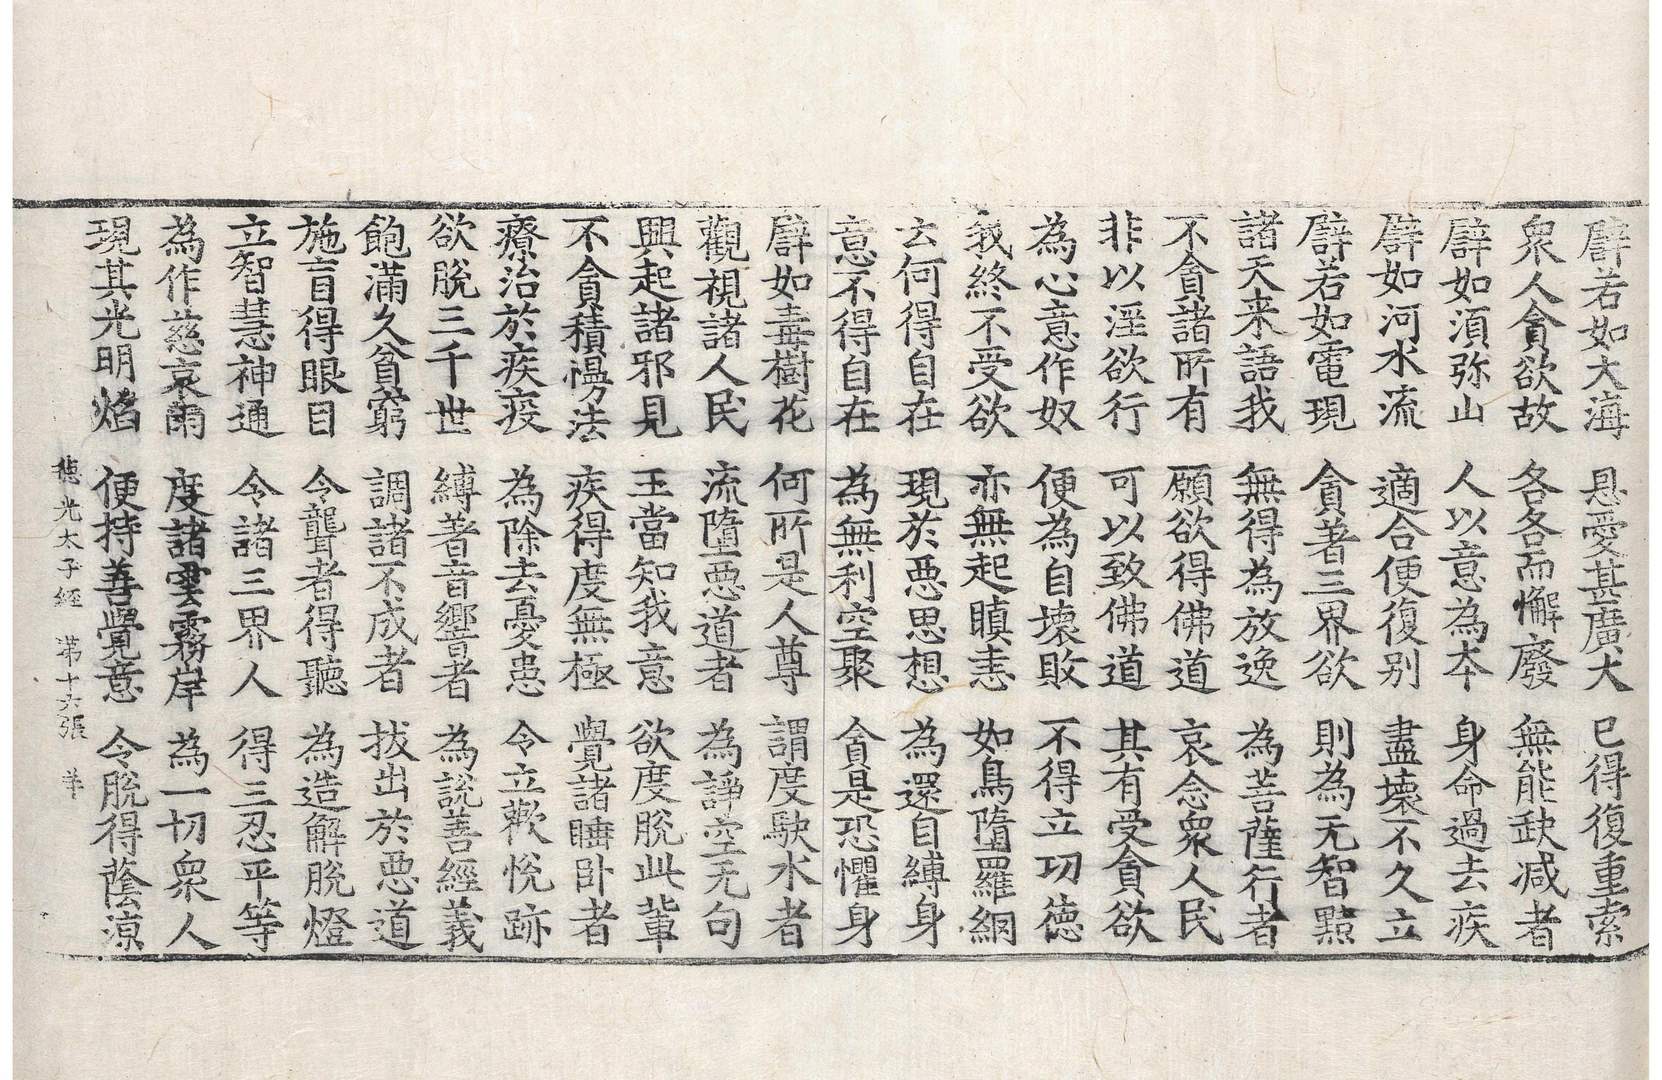 譬若如大海　恩愛甚廣大　已得復重索
衆人貪欲故　各各而懈廢　無能缺减者
譬如須弥山　人以意為本　身命過去疾
譬如河水流　適合便復别　盡壞不久立
譬若如電現　貪著三界欲　則為无智點
諸天来語我　無得為放逸　為菩薩行者
不貪諸所有　願欲得佛道　哀念衆人民
非以淫欲行　可以致佛道　其有受貪欲
為心意作奴　便為自壞敗　不得立功德
我終不受欲　亦無起瞋恚　如鳥墮羅網
云何得自在　現於惡思想　為還自縛身
意不得自在　為無利空聚　貪是恐懼身
譬如毒樹花　何所是人尊　謂度駛水者
觀視諸人民　流墮惡道者　為諍空无句
興起諸邪見　王當知我意　欲度脫此輩
不貪積㥛法　疾得度無極　覺諸睡卧者
療治於疾疫　為除去憂患　令立歡悅跡
欲脫三千世　縛著音響者　為說善經義
飽滿久貧窮　調諸不成者　拔出於惡道
施盲得眼目　令聾者得聽　為造解脫燈
立智慧神通　令諸三界人　得三忍平等
為作慈哀雨　度諸雲霧岸　為一切衆人
現其光明焰　便持善覺意　令脫得蔭涼
德光太子經　第十六張　羊